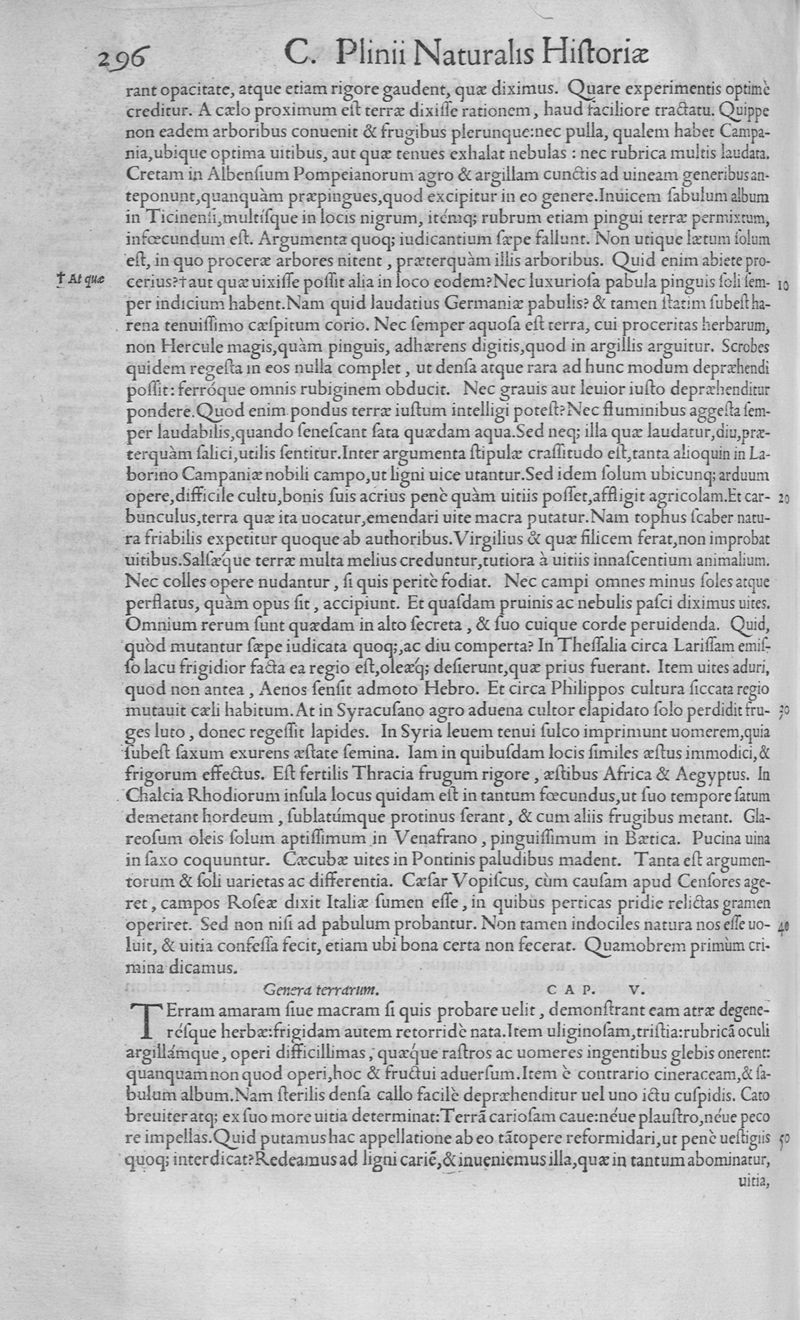 296 C. Plinii Naturalis Hiſtoriæ
rant opacitate, atque etiam rigore gaudent, quæ diximus. Quare experimentis optimè
creditur. A cælo proximum eſt terræ dixiſſe rationem, haud faciliore tractatu. Quippe
non eadem arboribus conuenit & frugibus plerunque:nec pulla, qualem habet Campa-
nia,ubique optima uitibus, aut quæ tenues exhalat nebulas : nec rubrica multis laudata.
Cretam in Albenſium Pompeianorum agro & argillam cunctis ad uineam generibus an-
teponunt,quanquàm præpingues,quod excipitur in eo genere.Inuicem ſabulum album
in Ticinenſi,multíſque in locis nigrum, itémq; rubrum etiam pingui terræ permixtum,
infœcundum eſt. Argumenta quoq; iudicantium ſæpe fallunt. Non utique lætum ſolum
eſt, in quo proceræ arbores nitent, præterquàm illis arboribus. Quid enim abiete pro-
† At quæ cerius?†aut quæ uixiſſe poſſit alia in loco eodem?Nec luxurioſa pabula pinguis ſoli ſem- 10
per indicium habent.Nam quid laudatius Germaniæ pabulis? & tamen ſtatim ſubeſt ha-
rena tenuiſſimo cæſpitum corio. Nec ſemper aquoſa eſt terra, cui proceritas herbarum,
non Hercule magis,quàm pinguis, adhærens digitis,quod in argillis arguitur. Scrobes
quidem regeſta in eos nulla complet, ut denſa atque rara ad hunc modum depræhendi
poſſit: ferróque omnis rubiginem obducit. Nec grauis aut leuior iuſto depræhenditur
pondere.Quod enim pondus terræ iuſtum intelligi poteſt?Nec fluminibus aggeſta ſem-
per laudabilis,quando ſeneſcant ſata quædam aqua.Sed neq; illa quæ laudatur,diu,præ-
terquàm ſalici,utilis ſentitur.Inter argumenta ſtipulæ craſſitudo eſt,tanta alioquin in La-
borino Campaniæ nobili campo,ut ligni uice utantur.Sed idem ſolum ubicunq; arduum
opere,difficile cultu,bonis ſuis acrius penè quàm uitiis poſſet,affligit agricolam.Et car- 20
bunculus,terra quæ ita uocatur,emendari uite macra putatur.Nam tophus ſcaber natu-
ra friabilis expetitur quoque ab authoribus.Virgilius & quæ filicem ferat,non improbat
uitibus.Salſæque terræ multa melius creduntur,tutiora à uitiis innaſcentium animalium.
Nec colles opere nudantur, ſi quis peritè fodiat. Nec campi omnes minus ſoles atque
perflatus, quàm opus ſit, accipiunt. Et quaſdam pruinis ac nebulis paſci diximus uites.
Omnium rerum ſunt quædam in alto ſecreta, & ſuo cuique corde peruidenda. Quid,
quòd mutantur ſæpe iudicata quoq;,ac diu comperta? In Theſſalia circa Lariſſam emiſ-
ſo lacu frigidior facta ea regio eſt,oleæq; deſierunt,quæ prius fuerant. Item uites aduri,
quod non antea, Aenos ſenſit admoto Hebro. Et circa Philippos cultura ſiccata regio
mutauit cæli habitum.At in Syracuſano agro aduena cultor elapidato ſolo perdidit fru- 30
ges luto, donec regeſſit lapides. In Syria leuem tenui ſulco imprimunt uomerem,quia
ſubeſt ſaxum exurens æſtate ſemina. Iam in quibuſdam locis ſimiles æſtus immodici,&
frigorum effectus. Eſt fertilis Thracia frugum rigore, æſtibus Africa & Aegyptus. In
Chalcia Rhodiorum inſula locus quidam eſt in tantum fœcundus,ut ſuo tempore ſatum
demetant hordeum, ſublatúmque protinus ferant, & cum aliis frugibus metant. Gla-
reoſum oleis ſolum aptiſſimum in Venafrano, pinguiſſimum in Bætica. Pucina uina
in ſaxo coquuntur. Cæcubæ uites in Pontinis paludibus madent. Tanta eſt argumen-
torum & ſoli uarietas ac differentia. Cæſar Vopiſcus, cùm cauſam apud Cenſores age-
ret, campos Roſeæ dixit Italiæ ſumen eſſe, in quibus perticas pridie relictas gramen
operiret. Sed non niſi ad pabulum probantur. Non tamen indociles natura nos eſſe uo- 40
luit, & uitia confeſſa fecit, etiam ubi bona certa non fecerat. Quamobrem primùm cri-
mina dicamus.
Genera terrarum. CAP. V.
TErram amaram ſiue macram ſi quis probare uelit, demonſtrant eam atræ degene-
réſque herbæ:frigidam autem retorridè nata.Item uliginoſam,triſtia:rubricã oculi
argillámque, operi difficillimas, quæque raſtros ac uomeres ingentibus glebis onerent:
quanquam non quod operi,hoc & fructui aduerſum.Item è contrario cineraceam,& ſa-
bulum album.Nam ſterilis denſa callo facilè depræhenditur uel uno ictu cuſpidis. Cato
breuiter atq; ex ſuo more uitia determinat:Terrã carioſam caue:néue plauſtro,néue peco
re impellas.Quid putamus hac appellatione ab eo tãtopere reformidari,ut penè ueſtigiis 50
quoq; interdicat?Redeamus ad ligni carié,& inueniemus illa,quæ in tantum abominatur,
uitia,